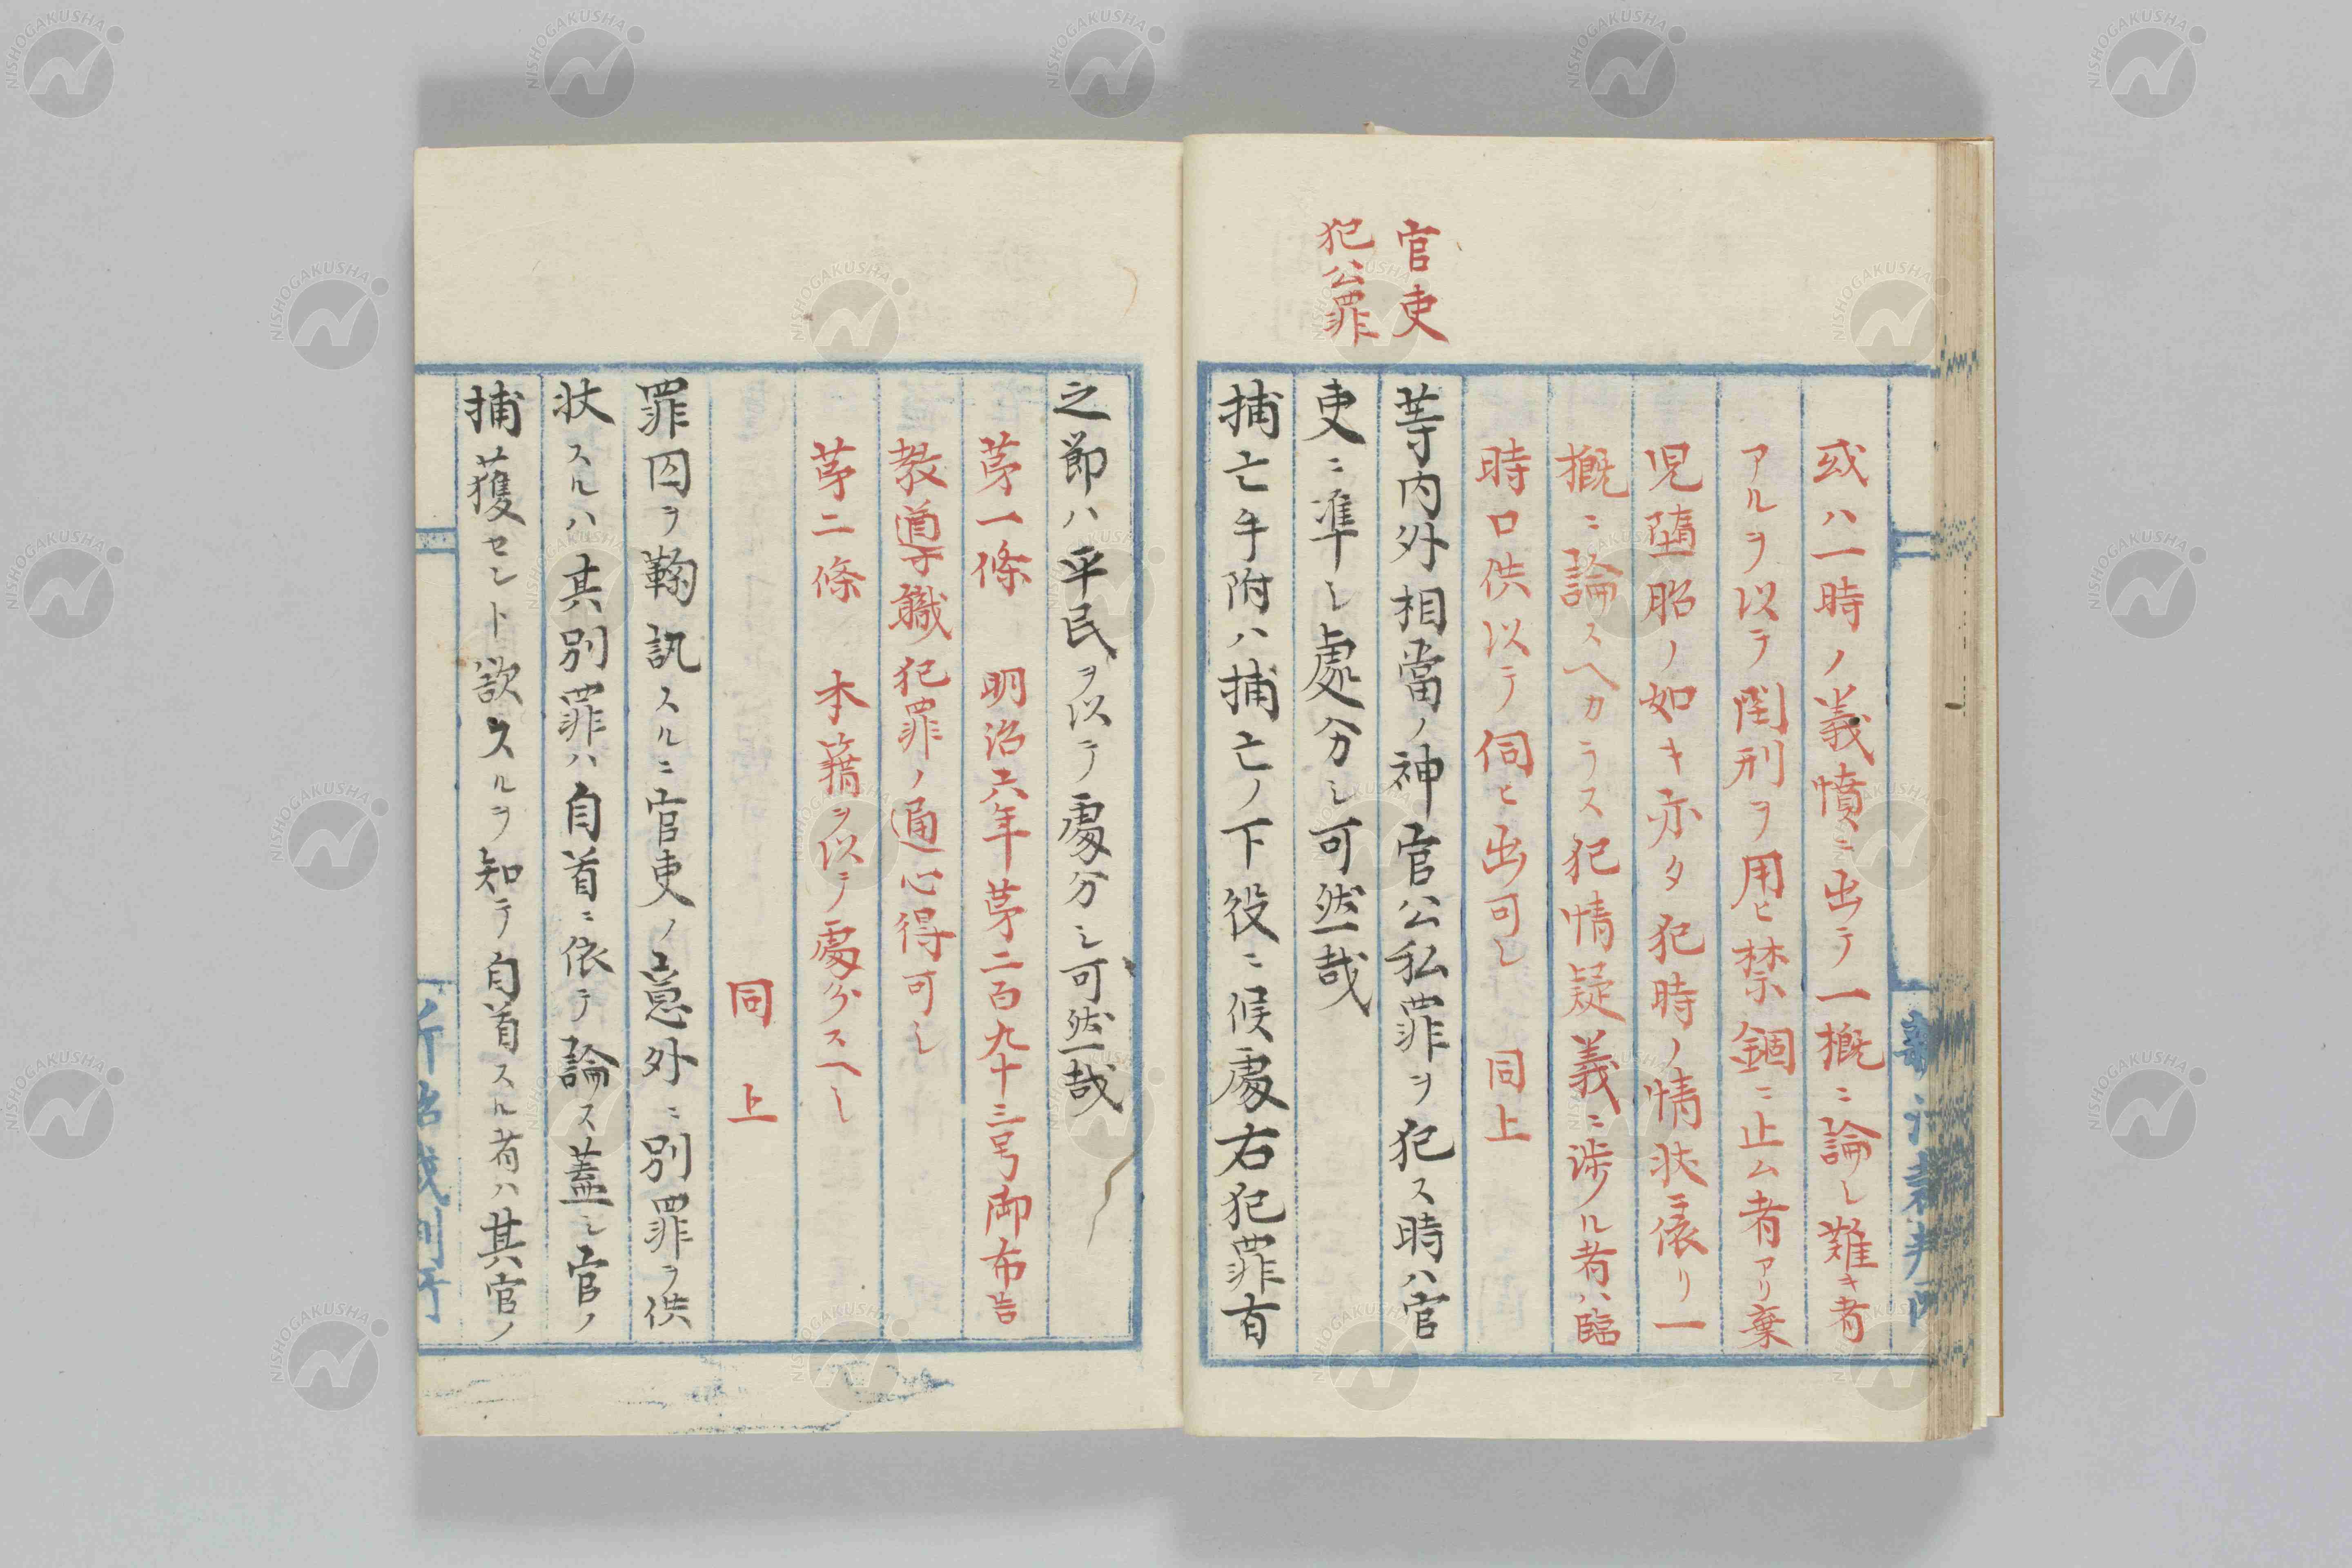 官吏
犯公罪
或ハ一時ノ義憤ニ出テ一概ニ論シ難キ者
アルヲ以テ閏刑ヲ用ヒ禁錮ニ止ム者アリ棄
児堕胎ノ如キ亦タ犯時ノ情状ニ依リ一
概ニ論スヘカラス犯情疑義ニ渉ル者ハ臨
時口供以テ伺ヒ出可シ 同上
等内外相當ノ神官公私罪ヲ犯ス時ハ官
吏ニ準シ處分シ可然哉
捕亡手附ハ捕亡ノ下役ニ候處右犯罪有
之節ハ平民ヲ以テ處分シ可然哉
第一條 明治六年第二百九十三号御布告
教導職犯罪ノ通心得可シ
第二條 本籍ヲ以テ處分スヘシ
同上
罪囚ヲ鞠訊スルニ官吏ノ意外ニ別罪ヲ供
状スルハ其別罪ハ自首ニ依テ論ス蓋シ官ノ
捕獲セント欲スルヲ知テ自首スル者ハ其官ノ
NISHOGAKUSHA